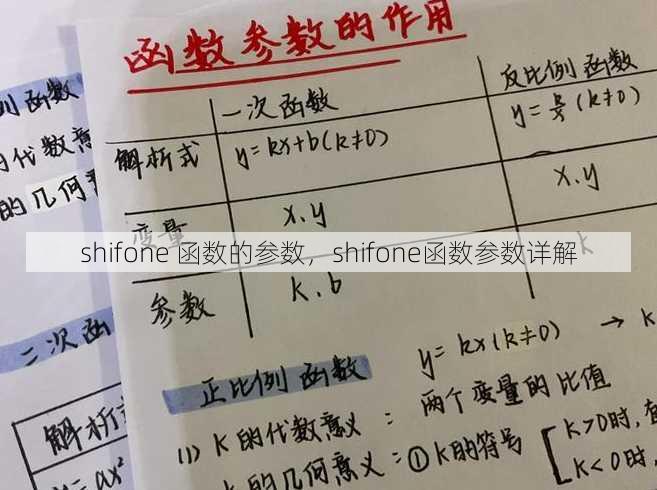 函数参数的作用
一次函数
反比例函数
解析式
y=kx+b(k≠0)
y=k/x (k≠0)
变量
x.y
x.y
shifone 函数的参数，shifone函数参数详解
参数
k.b
k
正比例函数
y=kx(k≠0) → k
(1) k的代数意义：两个变量的比值
的几何意义：①k的符号
k>0时,
k<0时,
函数
代数意
的几何
二次函
解析
y=ax²